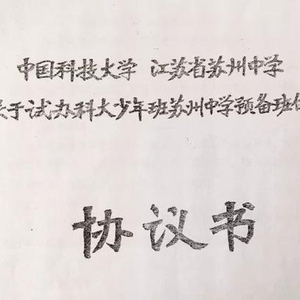 中国科技大学 江苏省苏州中学
关于试办科大少年班苏州中学预备班的
协议书